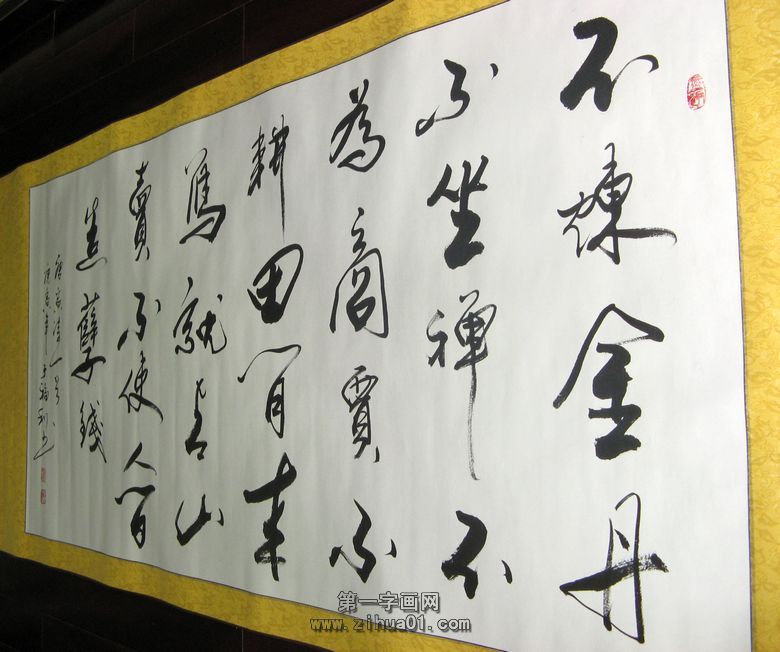 不煉金丹
不坐禪不
為商賈不
耕田閒来
寫就青山
賣不使人間
造孽錢
唐寅诗一首
第一字画网
www.zihua01.com